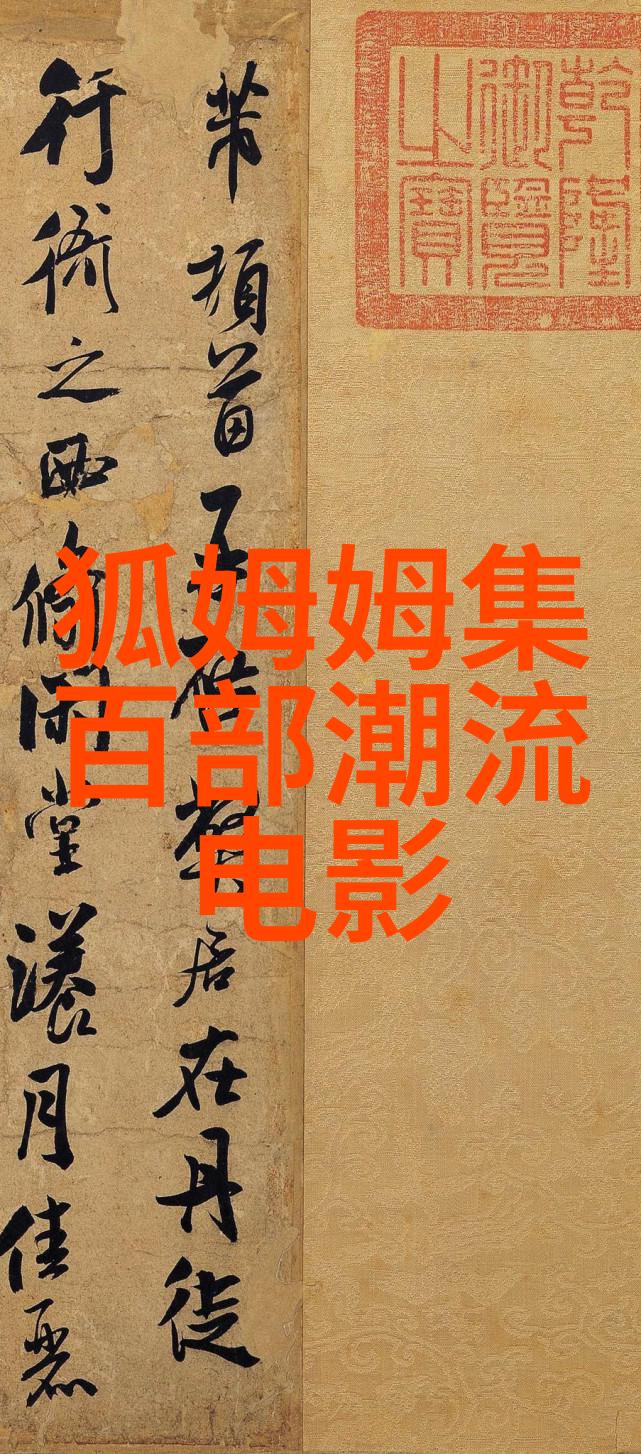 乾隆
御覽
之寶
芾頓首再啓弊居在丹徒
行衙之西脩閑堂漾月佳麗
狐姆姆集
百部潮流
电影